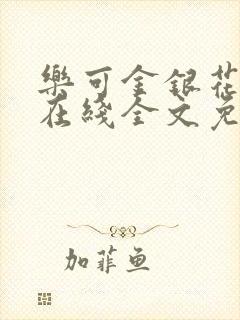 樂可金銀花
在綫全文免
加菲鱼